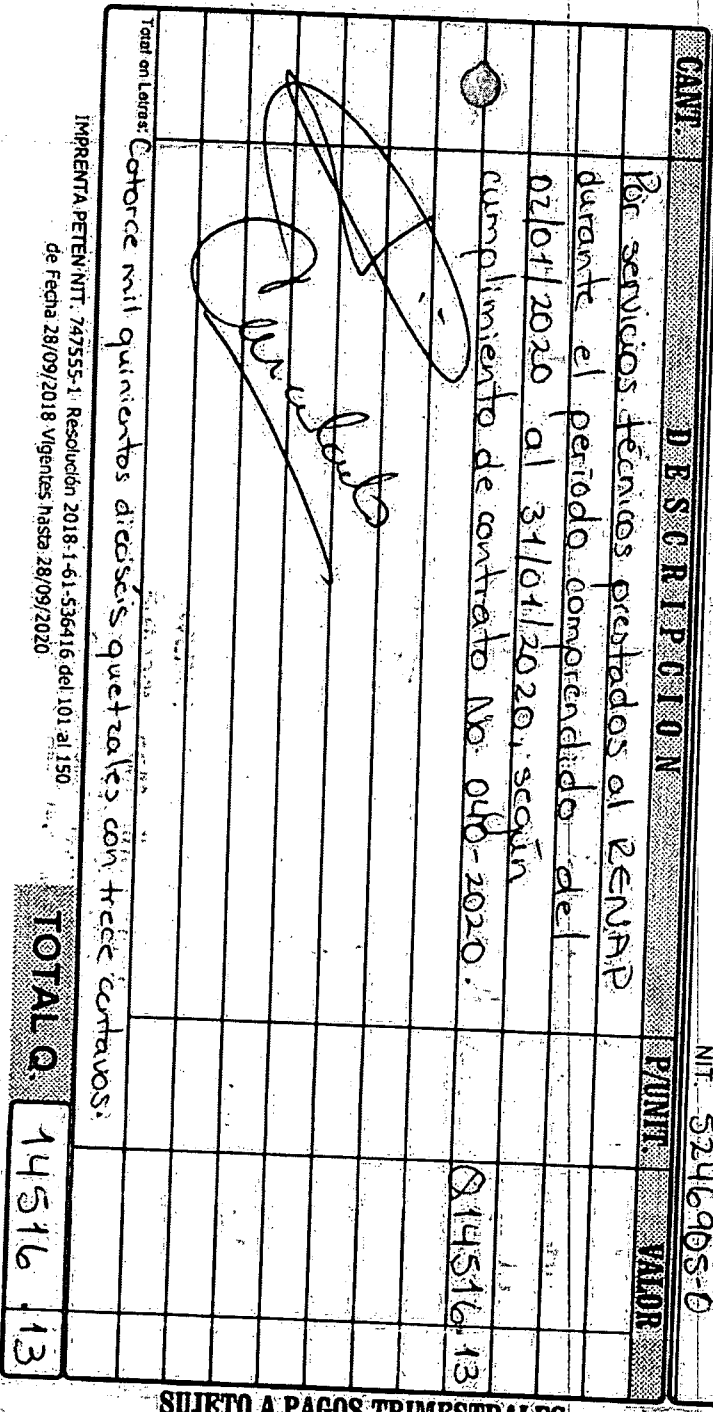 NIT. 5246905-0
CANT. DESCRIPCION P/UNIT. VALOR
Por servicios técnicos prestados al RENAP
durante el período comprendido del
02/01/2020 al 31/01/2020, según
cumplimiento de contrato No 040-2020. Q14516.13
Total en Letras: Catorce mil quinientos dieciséis quetzales con trece centavos.
IMPRENTA PETEN NIT. 747555-1 Resolución 2018-1-61-536416 del 101 al 150
de Fecha 28/09/2018 Vigentes hasta 28/09/2020
TOTAL Q. 14516.13
SUJETO A PAGOS TRIMESTRALES